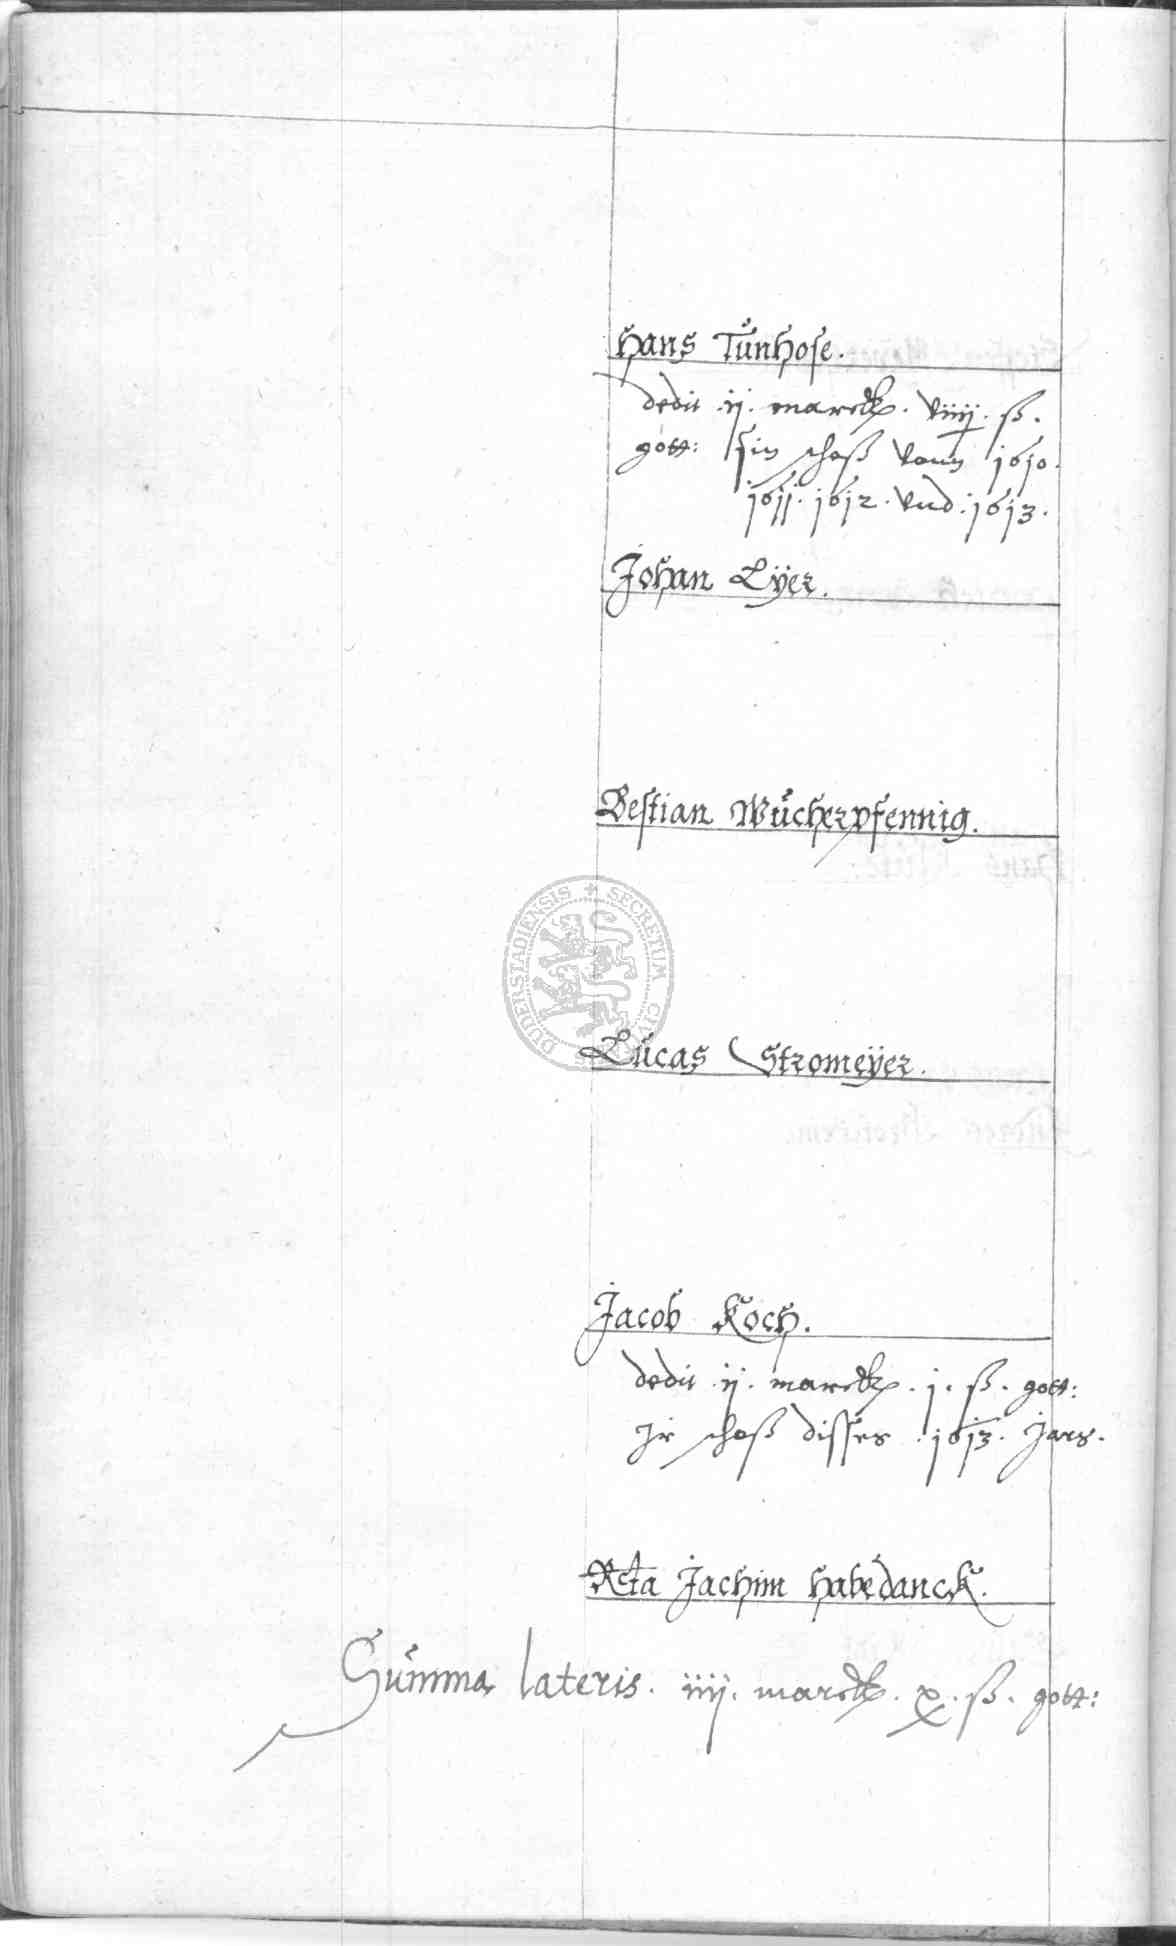 Hans Tunhose.
dedit .ij. marck. viiij. ß.
gott: sin schoß vonn 1610.
1611. 1612. vnd. 1613.
Johan Lÿer.
Bestian Wucherpfennig.
DUDERSTADIENSIS + SECRETUM CIVITATIS
Lucas Stromeÿer.
Jacob Koch.
dedit .ij. marck. j. ß. gott:
Jr schoß disses .1613. Jars.
Rcta Jachim Habedanck.
Summa lateris. iiij. marck. x. ß. gott: